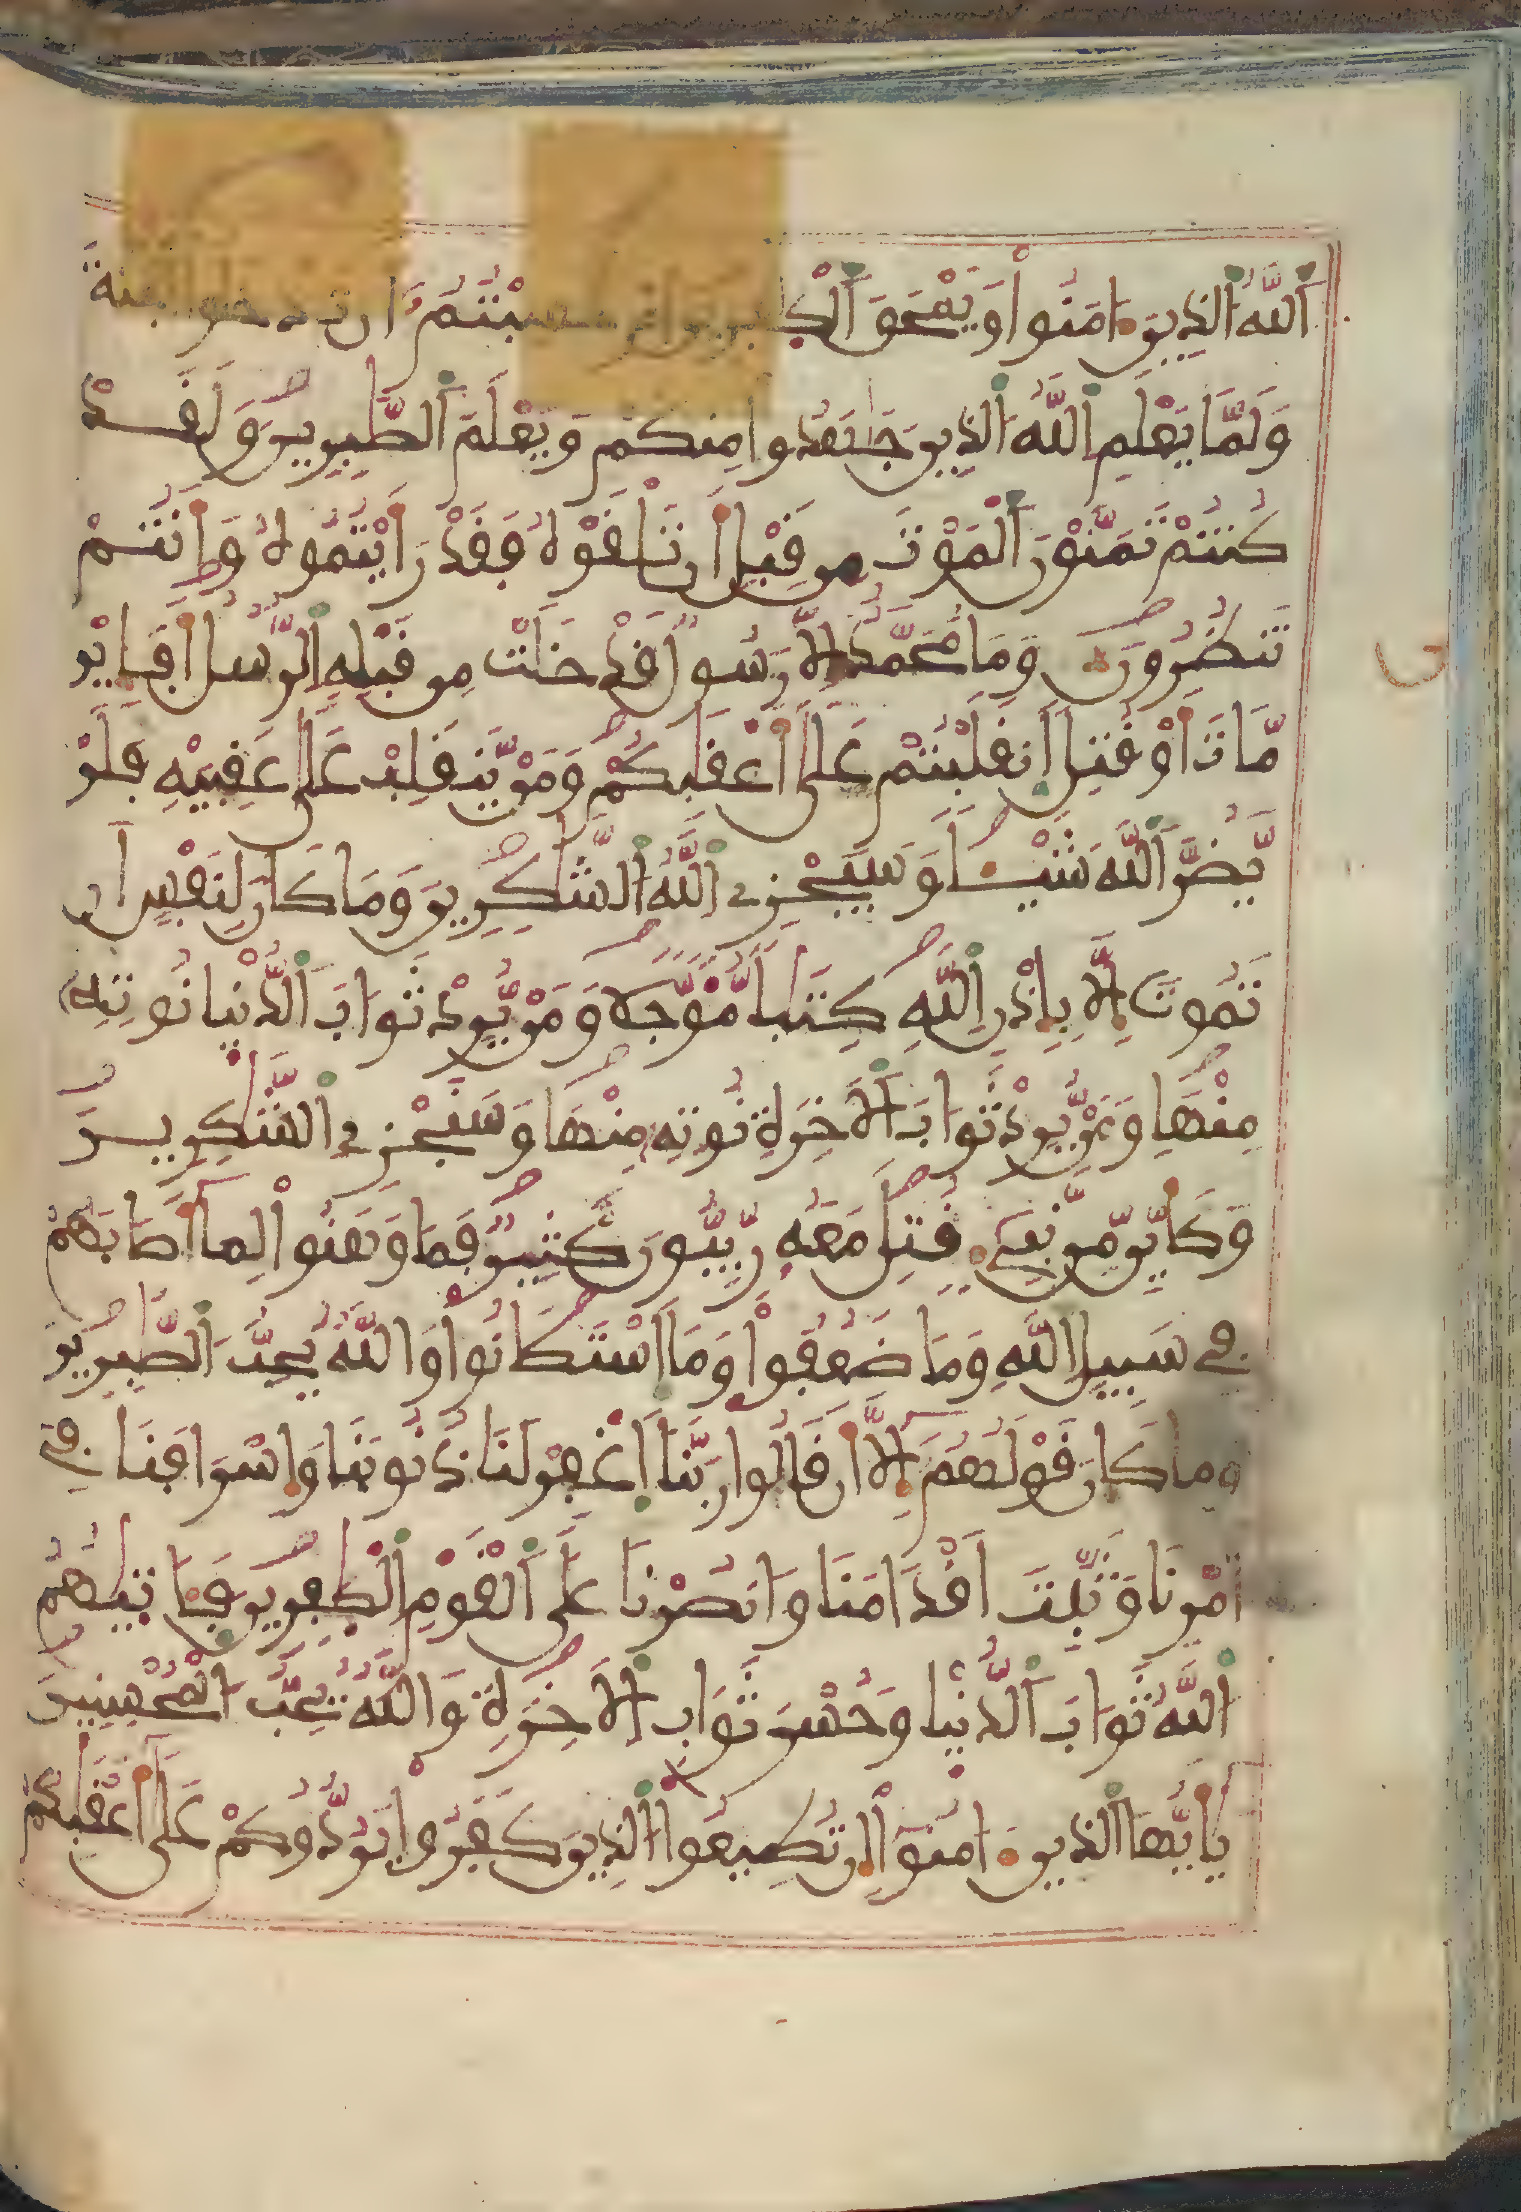 اَ۬للَّهُ اُ۬لذِينَ ءَامَنُواْ وَيَمْحَقَ اَ۬لْكٰفِرِينَ أَمْ حَسِبْتُمُۥٓ أَن تَدْخُلُواْ اُ۬لْجَنَّةَ
وَلَمَّا يَعْلَمِ اِ۬للَّهُ اُ۬لذِينَ جَٰهَدُواْ مِنكُمْ وَيَعْلَمَ اَ۬لصَّٰبِرِينَ وَلَقَدْ
كُنتُمْ تَمَنَّوْنَ اَ۬لْمَوْتَ مِن قَبْلِ أَن تَلْقَوْهُ فَقَدْ رَأَيْتُمُوهُ وَأَنتُمْ
تَنظُرُونَ وَمَا مُحَمَّدٌ اِلَّا رَسُولٌ قَدْ خَلَتْ مِن قَبْلِهِ اِ۬لرُّسُلُ أَفَإِيْن
مَّاتَ أَوْ قُتِلَ اَ۪نقَلَبْتُمْ عَلَىٰٓ أَعْقَٰبِكُمْ وَمَنْ يَّنقَلِبْ عَلَىٰ عَقِبَيْهِ فَلَنْ
يَّضُرَّ اَ۬للَّهَ شَيْـٔاً وَسَيَجْزِے اِ۬للَّهُ اُ۬لشَّٰكِرِينَ وَمَا كَانَ لِنَفْسٍ أَن
تَمُوتَ إِلَّا بِإِذْنِ اِ۬للَّهِ كِتَٰباً مُّؤَجَّلاً وَمَنْ يُّرِدْ ثَوَابَ اَ۬لدُّنْيَا نُؤْتِهِۦ
مِنْهَا وَمَنْ يُّرِدْ ثَوَابَ اَ۬لَاخِرَةِ نُؤْتِهِۦ مِنْهَا وَسَنَجْزِے اِ۬لشَّٰكِرِينَ
وَكَأَيِّن مِّن نَّبِيٓءٖ قُتِلَ مَعَهُۥ رِبِّيُّونَ كَثِيرٌ فَمَا وَهَنُواْ لِمَآ أَصَابَهُمْ
فِے سَبِيلِ اِ۬للَّهِ وَمَا ضَعُفُواْ وَمَا اَ۪سْتَكَانُواْ وَاللَّهُ يُحِبُّ اُ۬لصَّٰبِرِينَ
وَمَا كَانَ قَوْلَهُمُۥٓ إِلَّآ أَن قَالُواْ رَبَّنَا اَ۪غْفِرْ لَنَا ذُنُوبَنَا وَإِسْرَافَنَا فِےٓ
أَمْرِنَا وَثَبِّتَ اَقْدَامَنَا وَانصُرْنَا عَلَى اَ۬لْقَوْمِ اِ۬لْكٰفِرِينَ فَـَٔاتَيٰهُمُ
اُ۬للَّهُ ثَوَابَ اَ۬لدُّنْيَا وَحُسْنَ ثَوَابِ اِ۬لَاخِرَةِ وَاللَّهُ يُحِبُّ اُ۬لْمُحْسِنِينَ
يَٰٓأَيُّهَا اَ۬لذِينَ ءَامَنُوٓاْ إِن تُطِيعُواْ اُ۬لذِينَ كَفَرُواْ يَرُدُّوكُمْ عَلَىٰٓ أَعْقَٰبِكُمْ